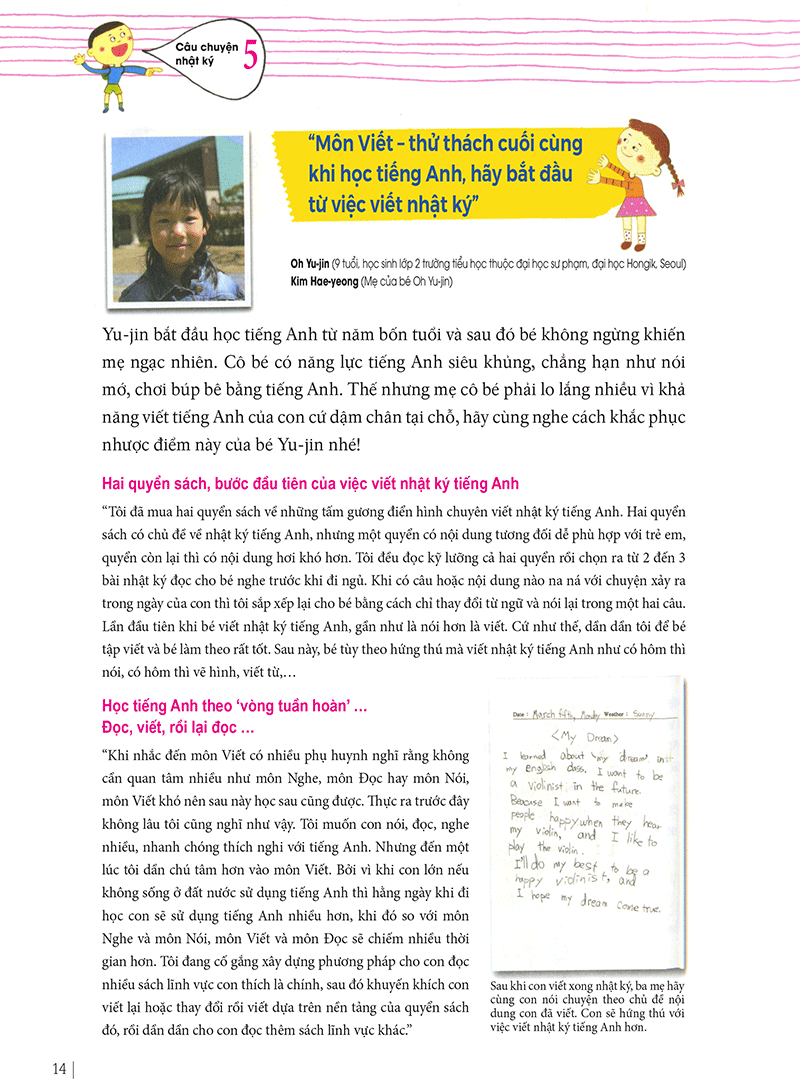 Câu chuyện
nhật ký
5
“Môn Viết – thử thách cuối cùng
khi học tiếng Anh, hãy bắt đầu
từ việc viết nhật ký”
Oh Yu-jin (9 tuổi, học sinh lớp 2 trường tiểu học thuộc đại học sư phạm, đại học Hongik, Seoul)
Kim Hae-yeong (Mẹ của bé Oh Yu-jin)
Yu-jin bắt đầu học tiếng Anh từ năm bốn tuổi và sau đó bé không ngừng khiến
mẹ ngạc nhiên. Cô bé có năng lực tiếng Anh siêu khủng, chẳng hạn như nói
mớ, chơi búp bê bằng tiếng Anh. Thế nhưng mẹ cô bé phải lo lắng nhiều vì khả
năng viết tiếng Anh của con cứ dậm chân tại chỗ, hãy cùng nghe cách khắc phục
nhược điểm này của bé Yu-jin nhé!
Hai quyển sách, bước đầu tiên của việc viết nhật ký tiếng Anh
“Tôi đã mua hai quyển sách về những tấm gương điển hình chuyên viết nhật ký tiếng Anh. Hai quyển
sách có chủ đề về nhật ký tiếng Anh, nhưng một quyển có nội dung tương đối dễ phù hợp với trẻ em,
quyển còn lại thì có nội dung hơi khó hơn. Tôi đều đọc kỹ lưỡng cả hai quyển rồi chọn ra từ 2 đến 3
bài nhật ký đọc cho bé nghe trước khi đi ngủ. Khi có câu hoặc nội dung nào na ná với chuyện xảy ra
trong ngày của con thì tôi sắp xếp lại cho bé bằng cách chỉ thay đổi từ ngữ và nói lại trong một hai câu.
Lần đầu tiên khi bé viết nhật ký tiếng Anh, gần như là nói hơn là viết. Cứ như thế, dần dần tôi để bé
tập viết và bé làm theo rất tốt. Sau này, bé tùy theo hứng thú mà viết nhật ký tiếng Anh như có hôm thì
nói, có hôm thì vẽ hình, viết từ,…
Học tiếng Anh theo ‘vòng tuần hoàn’ …
Đọc, viết, rồi lại đọc …
“Khi nhắc đến môn Viết có nhiều phụ huynh nghĩ rằng không
cần quan tâm nhiều như môn Nghe, môn Đọc hay môn Nói,
môn Viết khó nên sau này học sau cũng được. Thực ra trước đây
không lâu tôi cũng nghĩ như vậy. Tôi muốn con nói, đọc, nghe
nhiều, nhanh chóng thích nghi với tiếng Anh. Nhưng đến một
lúc tôi dần chú tâm hơn vào môn Viết. Bởi vì khi con lớn nếu
không sống ở đất nước sử dụng tiếng Anh thì hằng ngày khi đi
học con sẽ sử dụng tiếng Anh nhiều hơn, khi đó so với môn
Nghe và môn Nói, môn Viết và môn Đọc sẽ chiếm nhiều thời
gian hơn. Tôi đang cố gắng xây dựng phương pháp cho con đọc
nhiều sách lĩnh vực con thích là chính, sau đó khuyến khích con
viết lại hoặc thay đổi rồi viết dựa trên nền tảng của quyển sách
đó, rồi dần dần cho con đọc thêm sách lĩnh vực khác.”
Date : March fifth, Monday Weather : Sunny
<My Dream>
I learned about 'my dream' in
my english class. I want to be
a violinist in the future.
Beacuse I want to make
people happy when they hear
my violin, and I like to
play the violin.
I'll do my best to be a
happy violinist, and
I hope my dream come true.
Sau khi con viết xong nhật ký, ba mẹ hãy
cùng con nói chuyện theo chủ đề nội
dung con đã viết. Con sẽ hứng thú với
việc viết nhật ký tiếng Anh hơn.
14